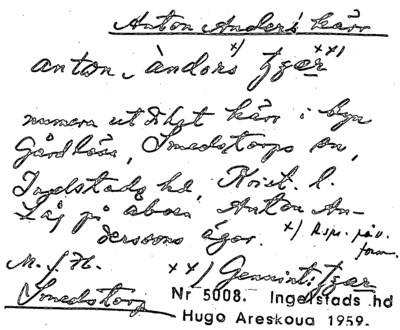 Anton Anders kärr
anton àndørs tzær
x) xx)
numera utdikat kärr i byn
Gårdlösa, Smedstorps sn,
Ingelstads hd, Krist. l.
Låg på åboen Anton An-
derssons ägor.
x) Resp. påv. form.
M. f. H.
xx) Genuint: tzar
Smedstorp
Nr 5008. Ingelstads hd
Hugo Areskoug 1959.